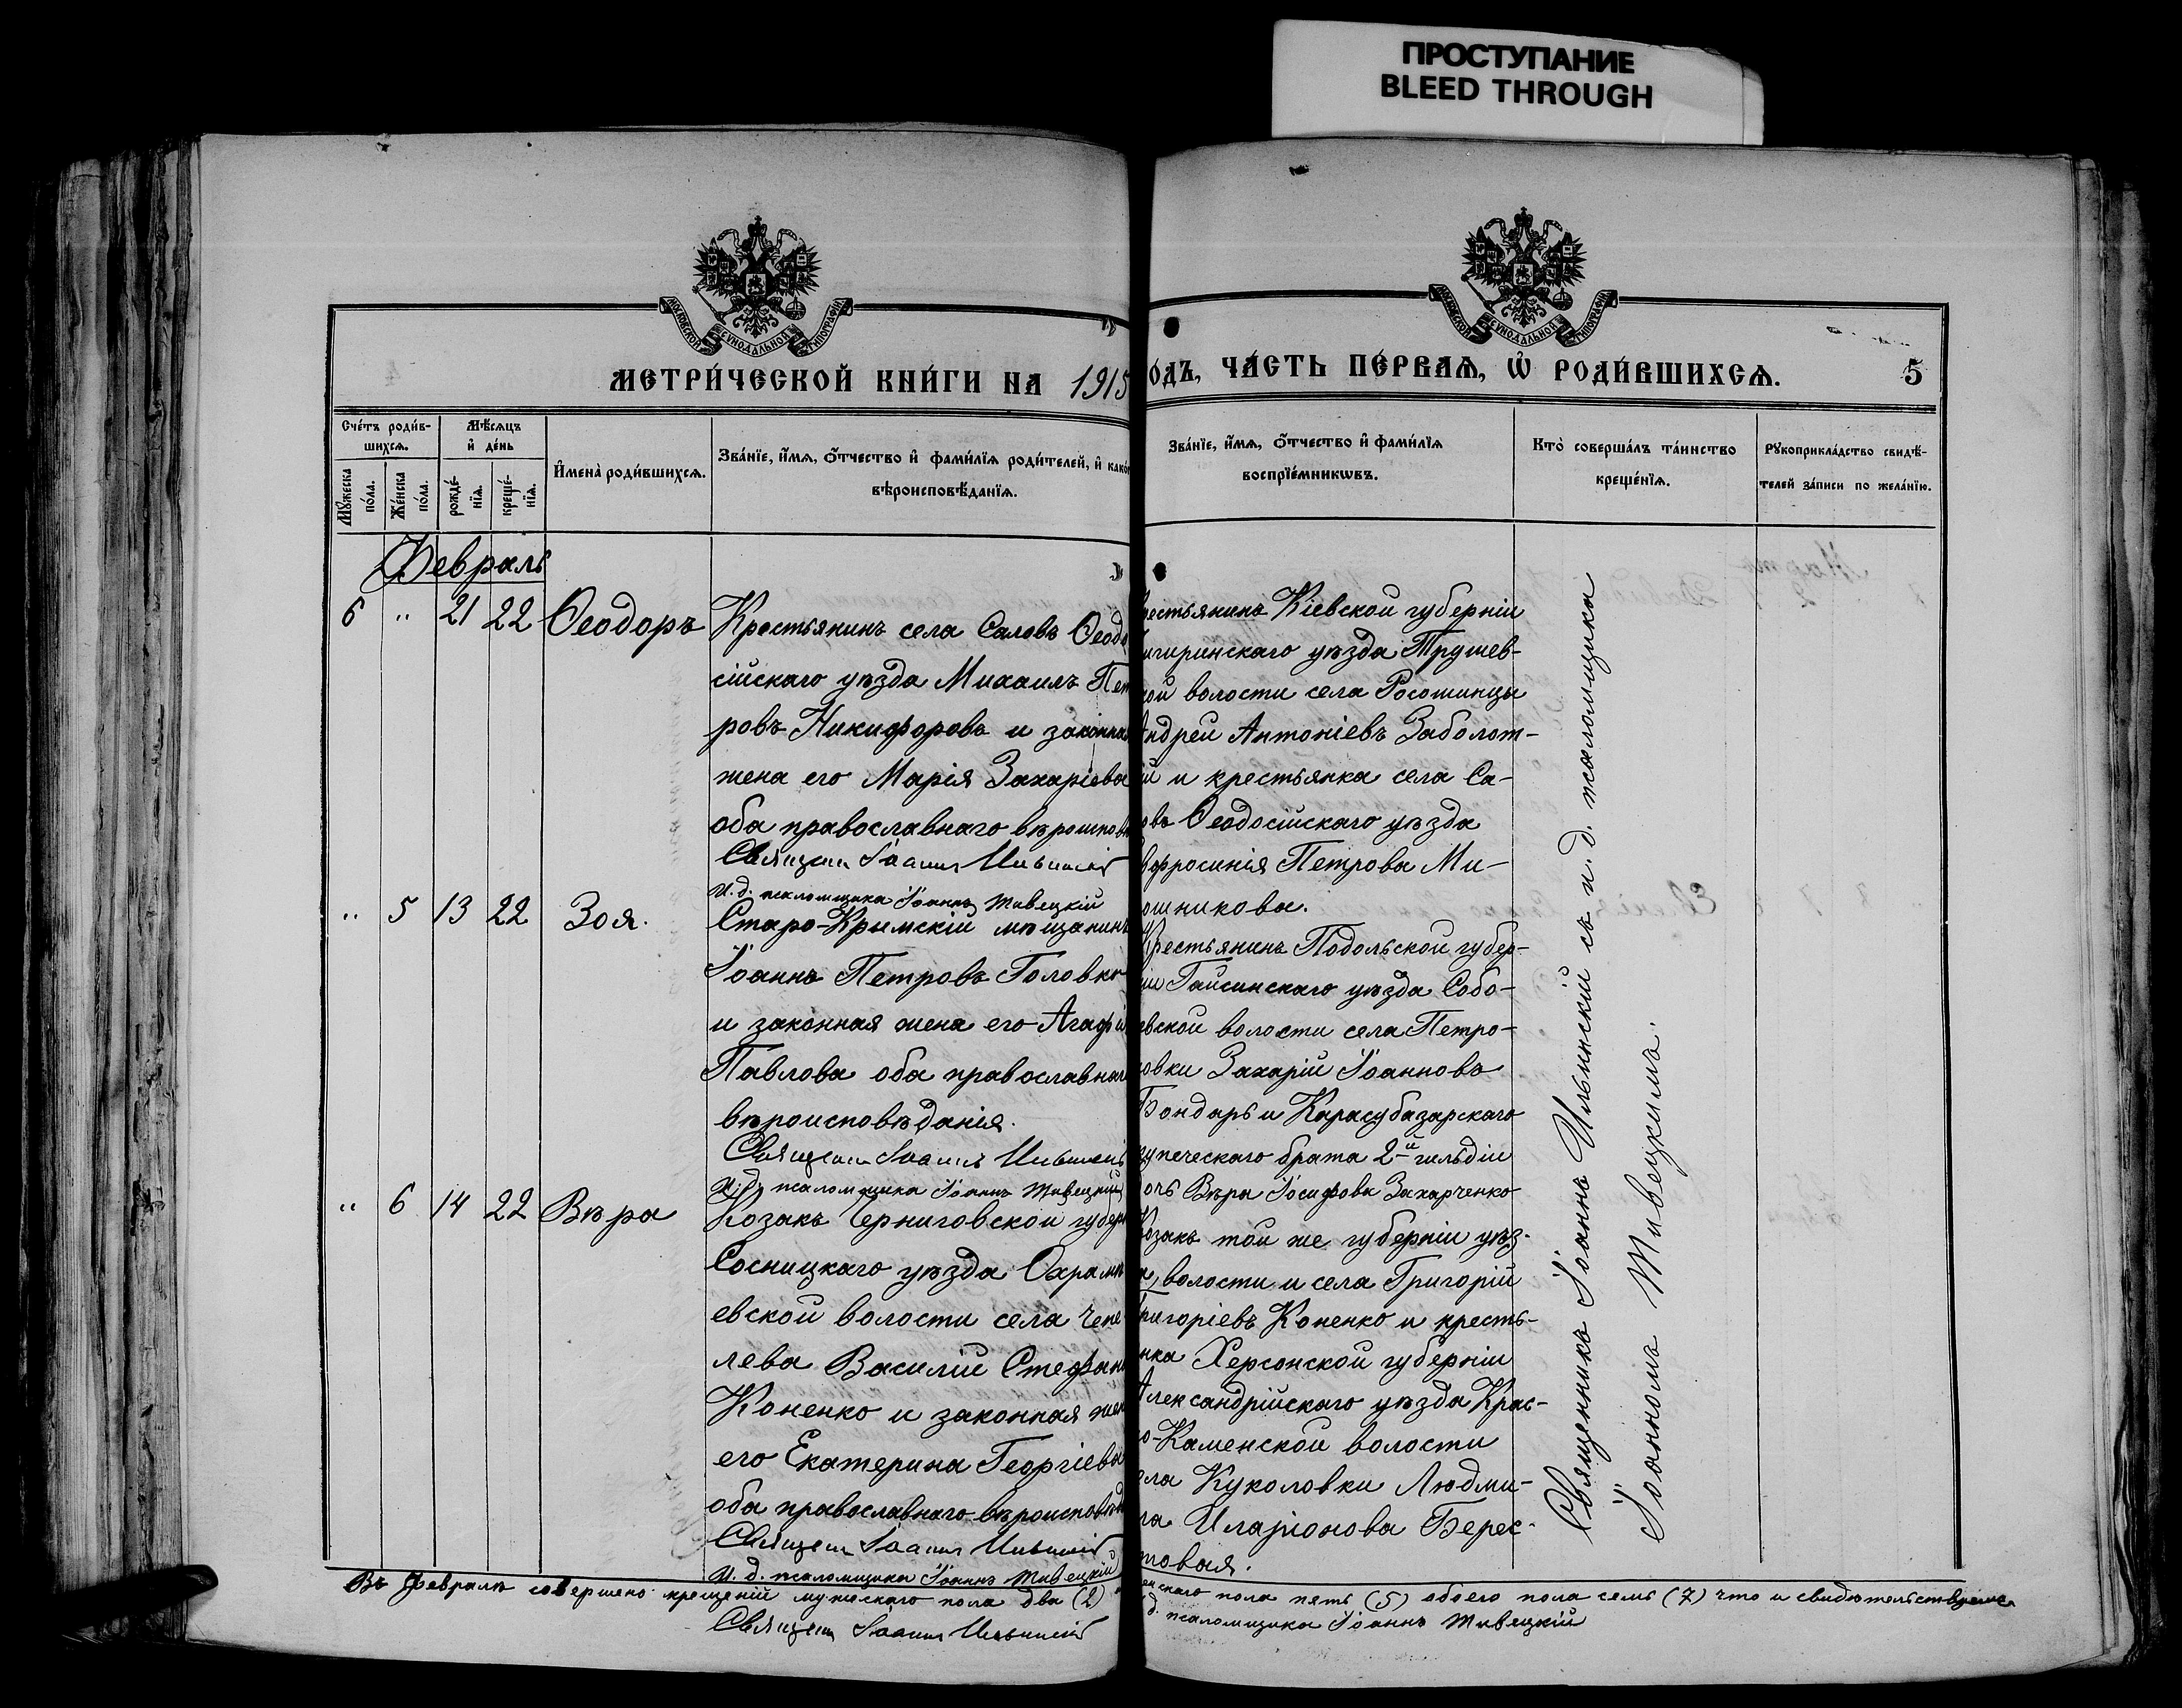 ПРОСТУПАНИЕ
BLEED THROUGH
МОСКОВСКОЙ СѴНОДАЛЬНОЙ ТИПОГРАФІИ
МОСКОВСКОЙ СѴНОДАЛЬНОЙ ТИПОГРАФІИ
МЕТРИ́ЧЕСКОЙ КНИ́ГИ НА 1915
ОДЪ, ЧА́СТЬ ПЕ́РВАѦ, Ѡ҆ РОДИ́ВШИХСѦ. 5
Сче́тъ роди́в-
шихсѧ.
Мꙋ́жеска
по́ла.
Же́нска
по́ла.
Мѣ́сѧцъ
и҆ де́нь
рожде́-
нїѧ.
креще́-
нїѧ.
И҆мена̀ роди́вшихсѧ.
Зва́нїе, и҆́мѧ, ѻ҆́тчество и҆ фами́лїѧ роди́телей, и҆ како́
вѣроисповѣ́данїѧ.
Зва́нїе, и҆́мѧ, ѻ҆́тчество и҆ фами́лїѧ
воспрїе́мникѡвъ.
Кто̀ соверша́лъ та́инство
креще́нїѧ.
Рꙋкоприкла́дство свидѣ́-
телей за́писи по жела́нїю.
Февраль
6 " 21 22 Ѳеодоръ
Крестьянинъ села Саловъ Ѳеодо
сійскаго уѣзда Михаилъ Пет
ровъ Никифоровъ и законная
жена его Марія Захаріева
оба православнаго вѣроисповѣ
Священ Іоаннъ Ильинскій
И. д. псаломщика Іоаннъ Тивецкій
рестьянинъ Кіевской губерніи
игиринскаго уѣзда Трушев-
кой волости села Росошинцы
Андрей Антоніевъ Заболот-
ій и крестьянка села Са-
овъ Ѳеодосійскаго уѣзда
вфросинія Петрова Ми-
ошникова.
" 5 13 22 Зоя.
Старо-Крымскій мѣщанинъ
Іоаннъ Петровъ Головко
и законная жена его Агафи
Павлова оба православнаг
вѣроисповѣданія.
Священ Іоаннъ Ильинскій
И. д. псаломщика Іоаннъ Тивецкій
Крестьянинъ Подольской губер-
іи Гайсинскаго уѣзда Собо-
евской волости села Петро-
овки Захарій Іоанновъ
Бондарь и Карасубазарскаго
купеческаго брата 2-й гильдіи
очь Вѣра Іосифова Захарченко
" 6 14 22 Вѣра
Козакъ Черниговской губерн
Сосницкаго уѣзда Охрамѣ
евской волости села Чепе
лева Василій Стефан
Коненко и законная жен
его Екатерина Георгіева
оба православнаго вѣроисповѣд
Священ Іоаннъ Ильинскій
И. д. псаломщика Іоаннъ Тивецкій
Козакъ той же губерніи уѣз-
а, волости и села Григорій
Григоріевъ Коненко и кресть-
нка Херсонской губерніи
Александрійскаго уѣзда Крас-
о-Каменской волости
ела Куколовки Людми-
ла Иларіонова Берес-
товая.
Священникъ Іоаннъ Ильинскій съ и. д. псаломщика
Іоанномъ Тивецкимъ.
Въ Февралѣ совершено крещеній мужескаго пола два (2)
енскаго пола пять (5) обоего пола семь (7) что и свидѣтельствуемъ
Священ Іоаннъ Ильинскій
д. псаломщика Іоаннъ Тивецкій